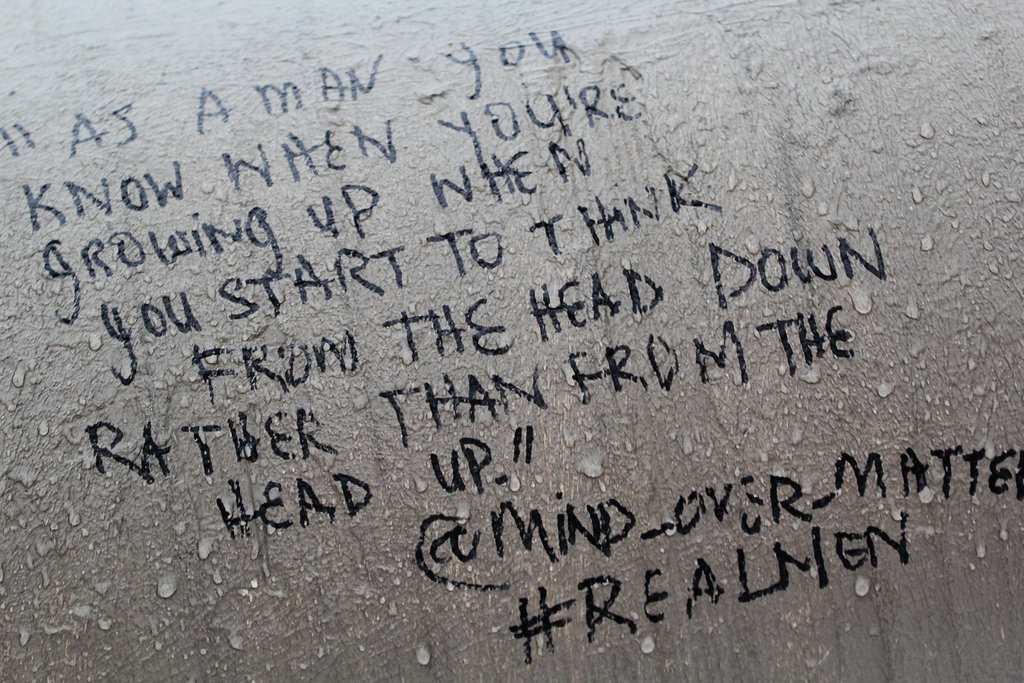 "AS A MAN YOU
KNOW WHEN YOU'RE
gROWING UP WHEN
YOU START TO THINK
FROM THE HEAD DOWN
RATHER THAN FROM THE
HEAD UP."
@MIND_OVER_MATTER
#REALMEN